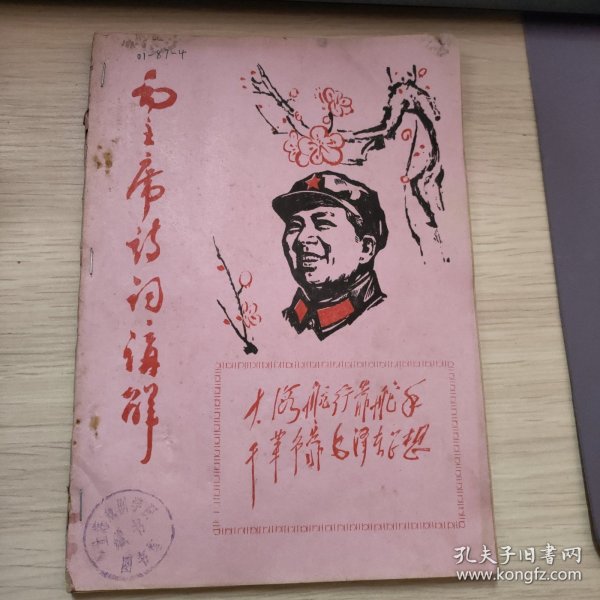 01-87-4
毛主席诗词讲解
大海航行靠舵手
干革命靠毛泽东思想
孔夫子旧书网
www.kongfz.com